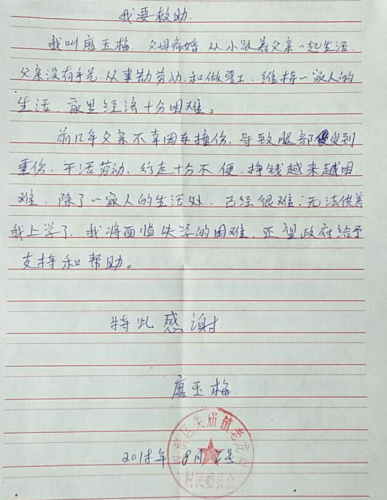 我要救助.
我叫唐玉梅 父母离婚 从小跟着父亲一起生活.
父亲没有手艺.从事勤劳动.和做零工,维持一家人的
生活 家里经济十分困难。
前几年父亲不幸因车撞伤,导致腿部受到
重伤.干活劳动.行走十分不便.挣钱越来越困
难.除了一家人的生活外.已经很难.无法供养
我上学了.我将面临失学的困难.还望政府给予
支持和帮助。
特此感谢
唐玉梅
2018年8月 号
村民委员会